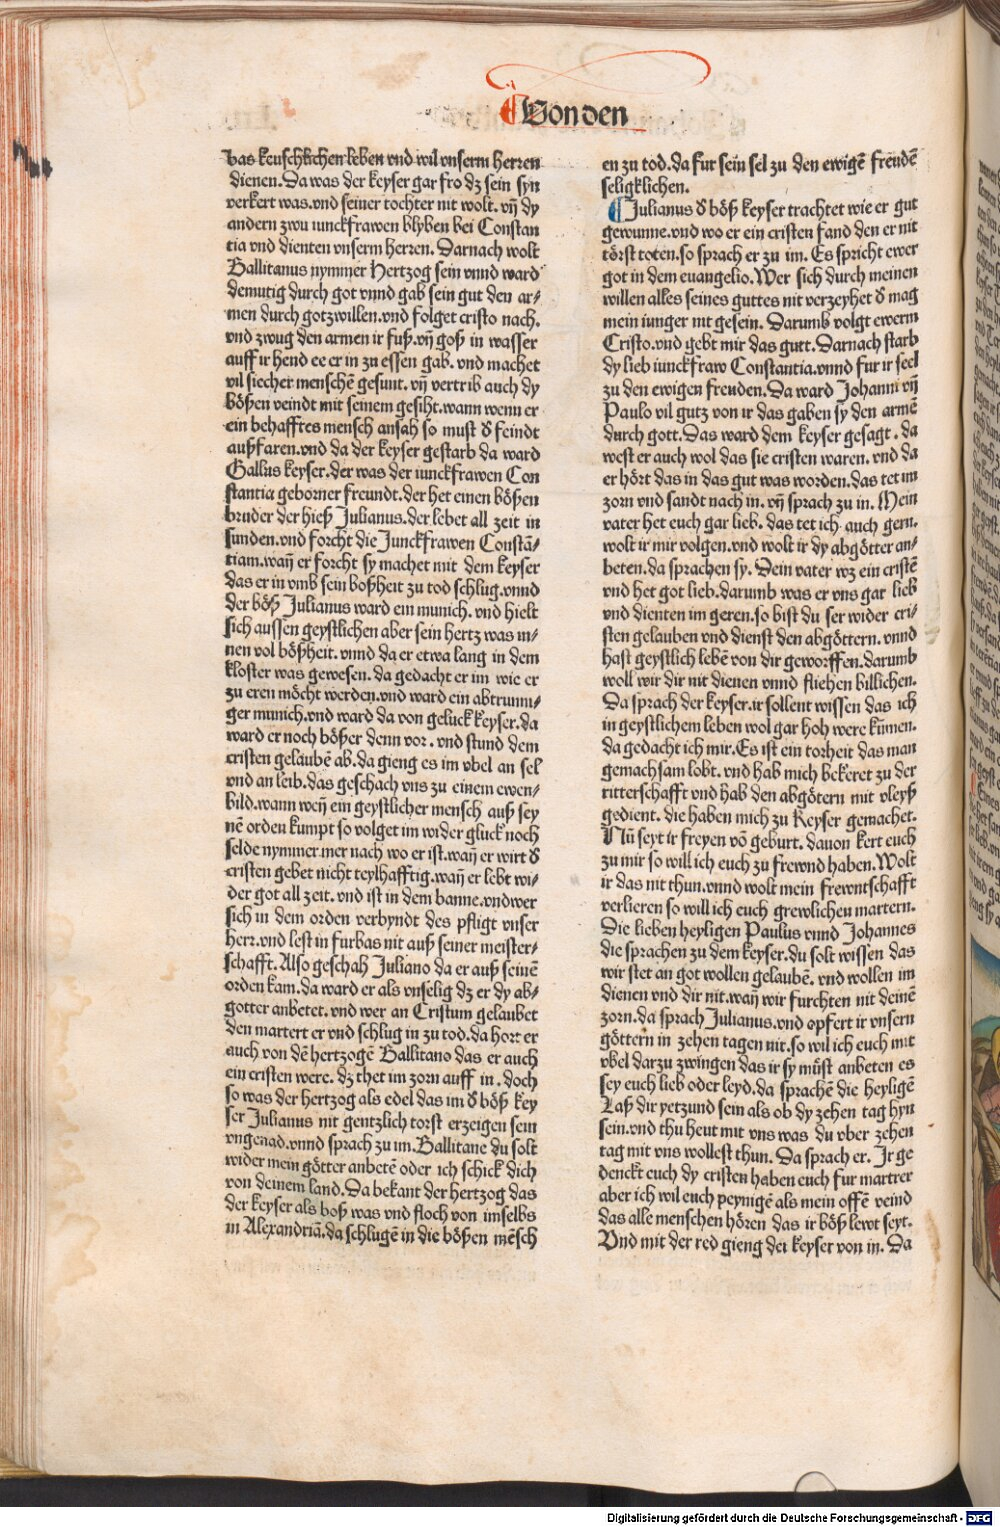 Von den
das keuschlichen leben vnd wil vnserm herren
dienen. Da was der keyser gar fro dz sein syn
verkert was. vnd seiner tochter nit wolt. vn̄ dy
andern zwu iunckfrawen blyben bei Constan
tia vnd dienten vnserm herren. Darnach wolt
Gallitanus nymmer Hertzog sein vnnd ward
demutig durch got vnnd gab sein gut den ar⸗
men durch gotzwillen. vnd folget cristo nach.
vnd zwug den armen ir fuß. vn̄ goß in wasser
auff ir hend ee er in zu essen gab. vnd machet
vil siecher menschē gesunt. vn̄ vertrib auch dy
bößen veindt mit seinem gesiht. wann wenn er
ein behafftes mensch ansah so must d feindt
außfaren. vnd da der keyser gestarb da ward
Gallus keyser. der was der iunckfrawen Con
stantia geborner freundt. der het einen bößen
bruder der hieß Julianus. der lebet all zeit in
sunden. vnd forcht die Junckfrawen Constā⸗
tiam. wan̄ er forcht sy machet mit dem keyser
das er in vmb sein boßheit zu tod schlug. vnnd
der böß Julianus ward ein munich. vnd hielt
sich aussen geystlichen aber sein hertz was in⸗
nen vol bößheit. vnnd da er etwa lang in dem
kloster was gewesen. da gedacht er im wie er
zu eren möcht werden. vnd ward ein abtrunni⸗
ger munich. vnd ward da von geluck keyser. da
ward er noch bößer denn vor. vnd stund dem
cristen gelaubē ab. da gieng es im vbel an sel
vnd an leib. das geschach vns zu einem ewen⸗
bild. wann wen̄ ein geystlicher mensch auß sey
nē orden kumpt so volget im wider gluck noch
selde nymmer mer nach wo er ist. wan̄ er wirt d
cristen gebet nicht teylhafftig. wan̄ er lebt wi⸗
der got all zeit. vnd ist in dem banne. vnd wer
sich in dem orden verbyndt des pfligt vnser
herr. vnd lest in furbas nit auß seiner meister⸗
schafft. Also geschah Juliano da er auß seinē
orden kam. da ward er als vnselig dz er dy ab⸗
gotter anbetet. vnd wer an Cristum gelaubet
den martert er vnd schlug in zu tod. da hort er
auch von dē hertzogē Gallitano das er auch
ein cristen were. dz thet im zorn auff in. doch
so was der hertzog als edel das im d böß key
ser Julianus nit gentzlich torst erzeigen sein
vngenad. vnnd sprach zu im. Gallitane du solt
wider mein götter anbetē oder ich schick dich
von deinem land. Da bekant der hertzog das
der keyser als boß was vnd floch von im selbs
in Alexandriā. da schlugē in die bößen mēsch
en zu tod. da fur sein sel zu den ewigē freudē
seligklichen.
Julianus d böß keyser trachtet wie er gut
gewunne. vnd wo er ein cristen fand den er nit
törst toten. so sprach er zu im. Es spricht ewer
got in dem euangelio. Wer sich durch meinen
willen alles seines guttes nit verzeyhet d mag
mein iunger nit gesein. Darumb volgt ewerm
Cristo. vnd gebt mir das gutt. Darnach starb
dy lieb iunckfraw Constantia. vnnd fur ir seel
zu den ewigen freuden. Da ward Johanni vn̄
Paulo vil gutz von ir das gaben sy den armē
durch gott. Das ward dem keyser gesagt. da
west er auch wol das sie cristen waren. vnd da
er hört das in das gut was worden. das tet im
zorn vnd sandt nach in. vn̄ sprach zu in. Mein
vater het euch gar lieb. das tet ich auch gern.
wolt ir mir volgen. vnd wolt ir dy abgötter an⸗
beten. da sprachen sy. Dein vater wz ein cristē
vnd het got lieb. darumb was er vns gar lieb
vnd dienten im geren. so bist du ser wider cri⸗
sten gelauben vnd dienst den abgöttern. vnnd
hast geystlich lebē von dir geworffen. darumb
woll wir dir nit dienen vnnd fliehen billichen.
Da sprach der keyser. ir sollent wissen das ich
in geystlichem leben wol gar hoh were kūmen.
da gedacht ich mir. Es ist ein torheit das man
gemachsam lobt. vnd hab mich bekeret zu der
ritterschafft vnd hab den abgötern mit vleyß
gedient. die haben mich zu Keyser gemachet.
Nū seyt ir freyen vō geburt. dauon kert euch
zu mir so will ich euch zu frewnd haben. Wolt
ir das nit thun. vnnd wolt mein frewntschafft
verlieren so will ich euch grewlichen martern.
Die lieben heyligen Paulus vnnd Johannes
die sprachen zu dem keyser. du solt wissen das
wir stet an got wollen gelaubē. vnd wollen im
dienen vnd dir nit. wan̄ wir furchten nit deinē
zorn. da sprach Julianus. vnd opfert ir vnsern
göttern in zehen tagen nit. so wil ich euch mit
vbel darzu zwingen das ir sy müst anbeten es
sey euch lieb oder leyd. da sprachē die heyligē
Laß dir yetzund sein als ob dy zehen tag hyn
sein. vnd thu heut mit vns was du vber zehen
tag mit vns wollest thun. Da sprach er. Ir ge
denckt euch dy cristen haben euch fur martrer
aber ich wil euch peynigē als mein offē veind
das alle menschen hören das ir böß lewt seyt.
Vnd mit der red gieng der keyser von in. Da
Digitalisierung gefördert durch die Deutsche Forschungsgemeinschaft - DFG